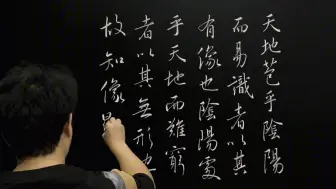 天地苞乎陰陽
而易識者以其
有像也陰陽處
乎天地而難窮
者以其無形也
故知像